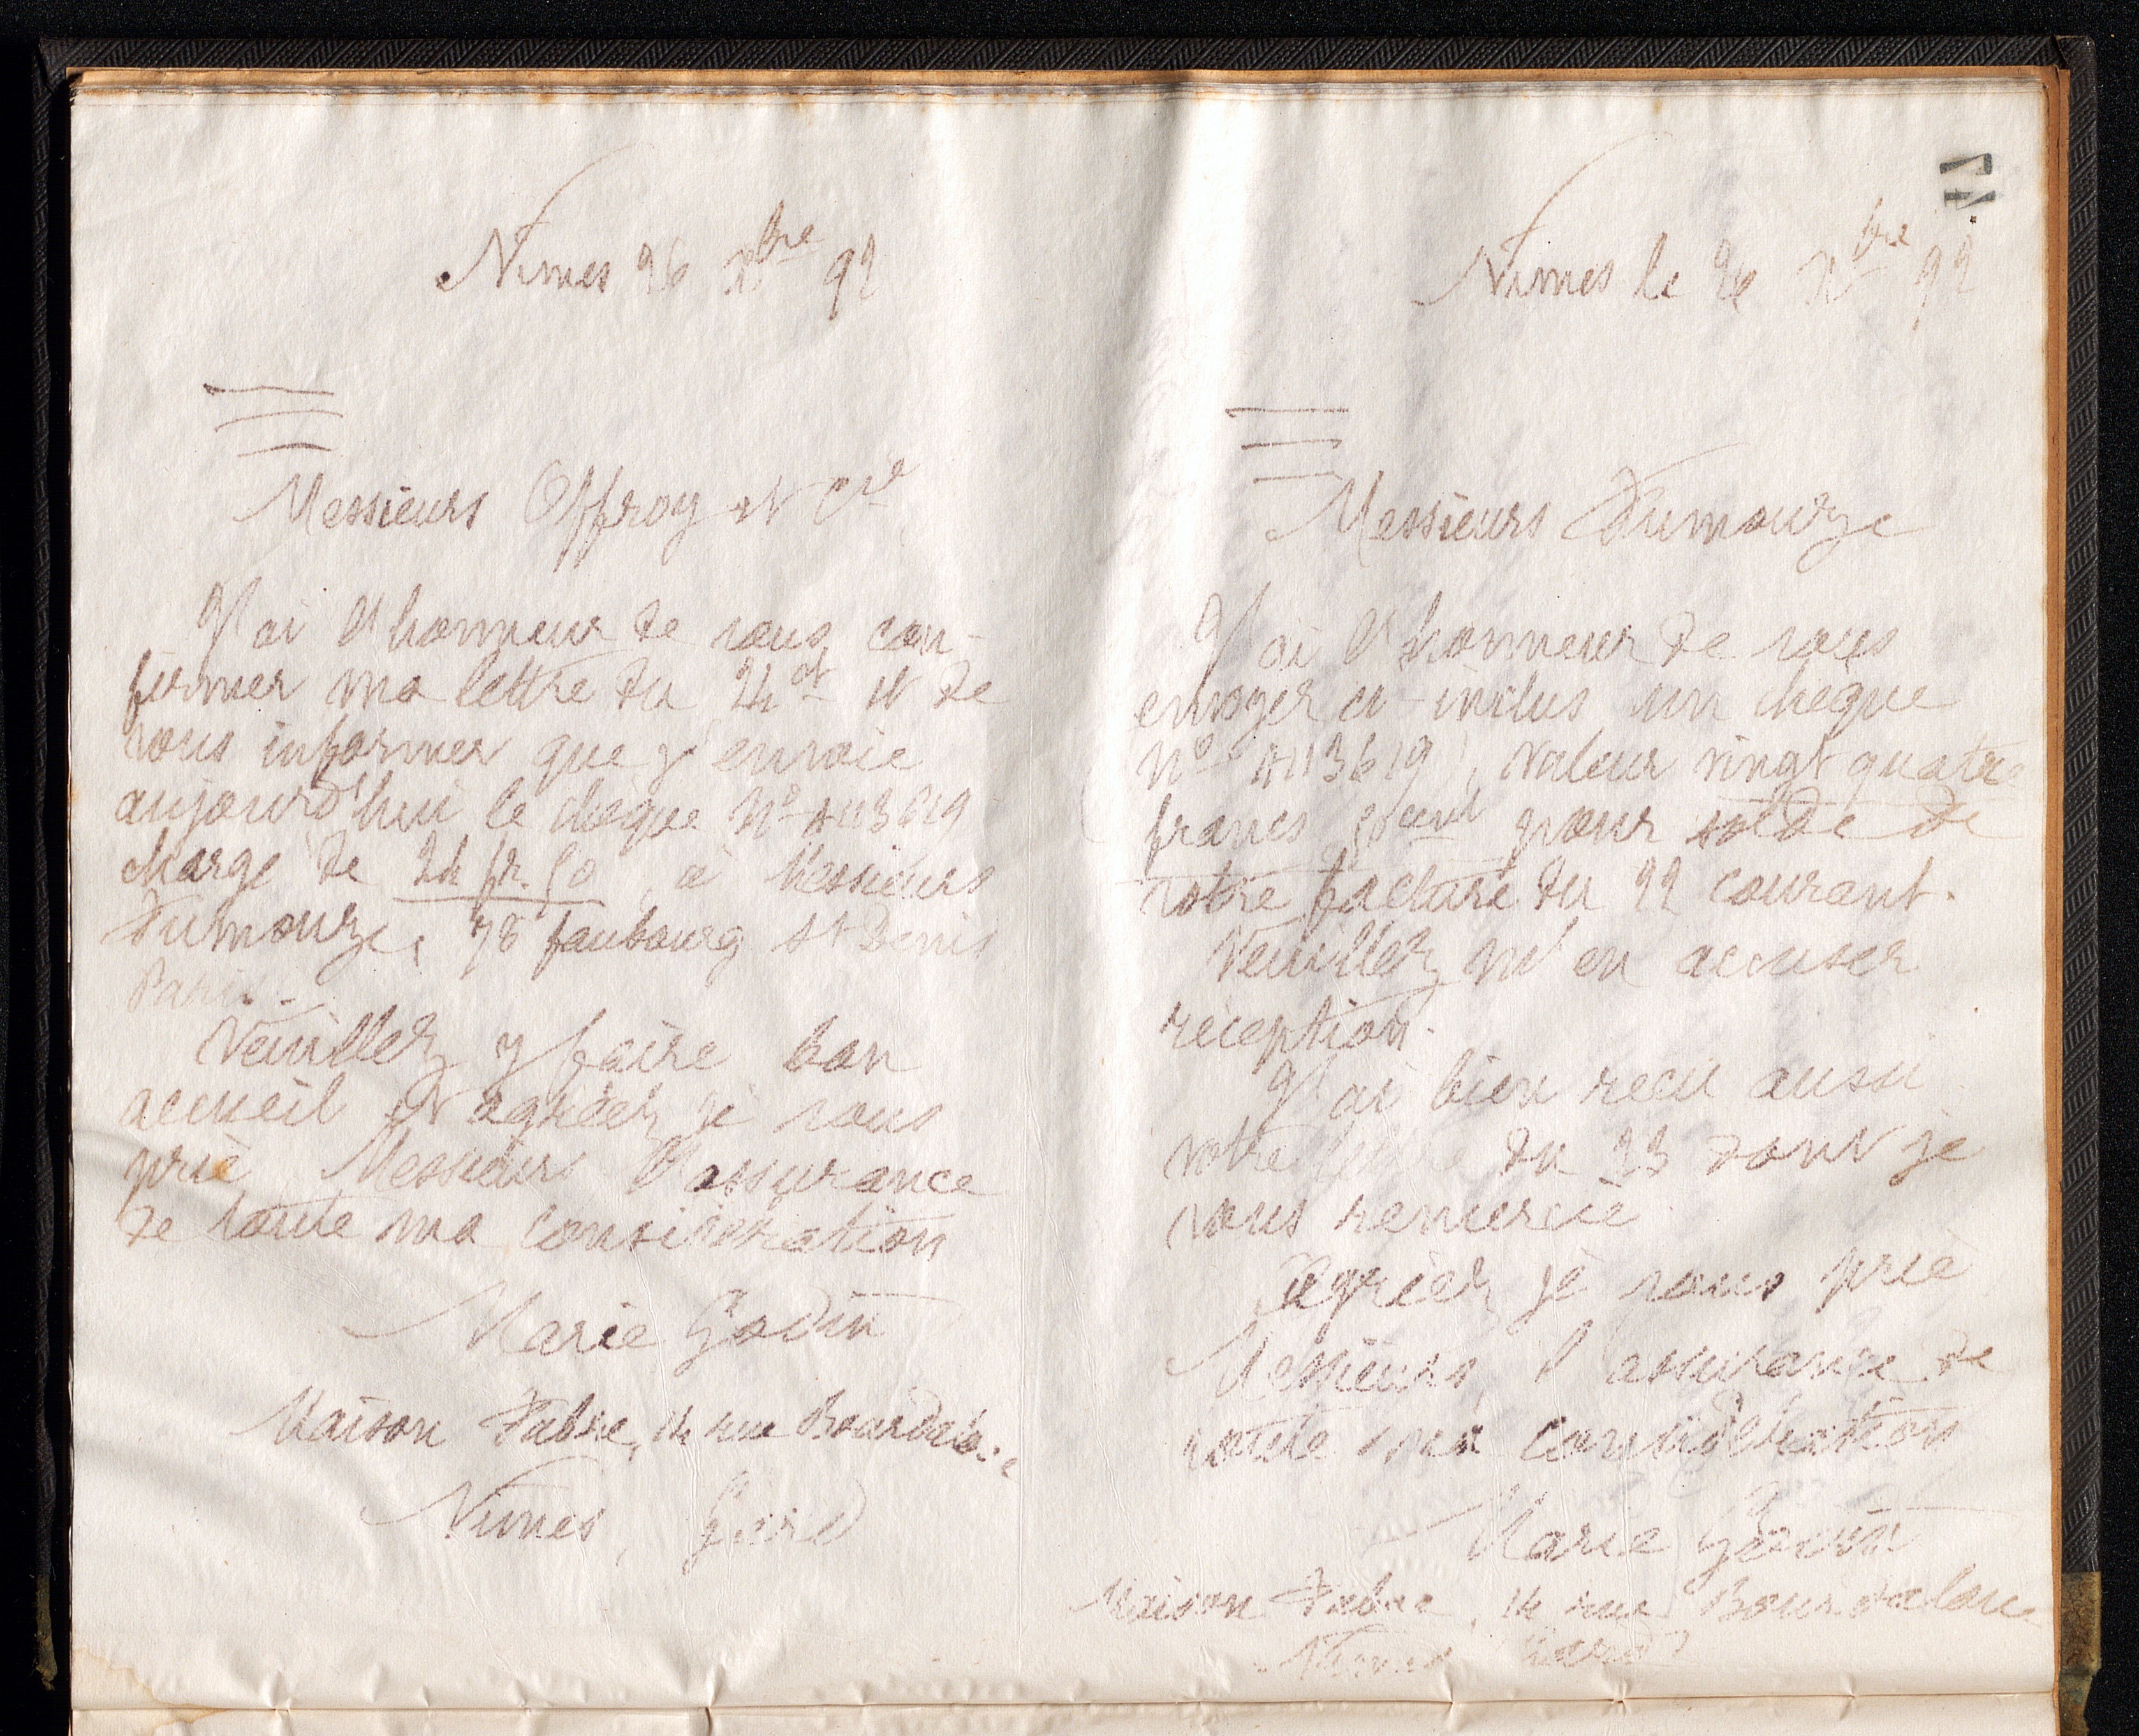 Nimes 26 Xbre 92
Messieurs Offroy et Cie
J'ai l'honneur de vous con-
firmer ma lettre du 24 ct et de
vous informer que j'envoie
aujourd'hui le chèque No 4113619
charge de 24 fr. 50, à Messieurs
Dumouze, 78 faubourg St Denis
Paris.
Veuillez y faire bon
accueil et agréez je vous
prie Messieurs l'assurance
de toute ma considération
Marie Godin
Maison Fabre, 14 rue Bourdaloue
Nimes, Gard
11
Nimes le 26 Xbre 92
Messieurs Dumouze
J'ai l'honneur de vous
envoyer ci-inclus un chèque
No 4113619, valeur vingt quatre
francs 50 cent pour solde de
votre facture du 22 courant.
Veuillez m'en accuser
réception.
J'ai bien recu aussi
votre lettre du 23 dont je
vous remercie
Agréez je vous prie
Messieurs, l'assurance de
toute ma considération
Marie Godin
Maison Fabre, 14 rue Bourdaloue
Nimes Gard